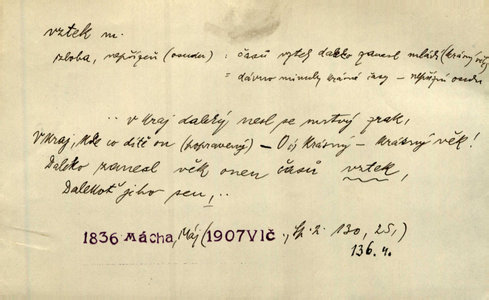 vztek m.
zloba, nepřízeň (osudu) : časů vztek daleko zanesl mládí (krásný věk)
= dávno minuly krásné časy – nepřízní osudu
.. v kraj daleký nesl se mrtvý zrak,
V kraj, kde co dítě on (popravený) – O jej krásný – krásný věk!
Daleko zanesl věk onen časů vztek,
Dalekoť jeho sen,..
1836 Mácha, Máj (1907 Vlč., Sp. 2. 130, 25,)
136. 4.